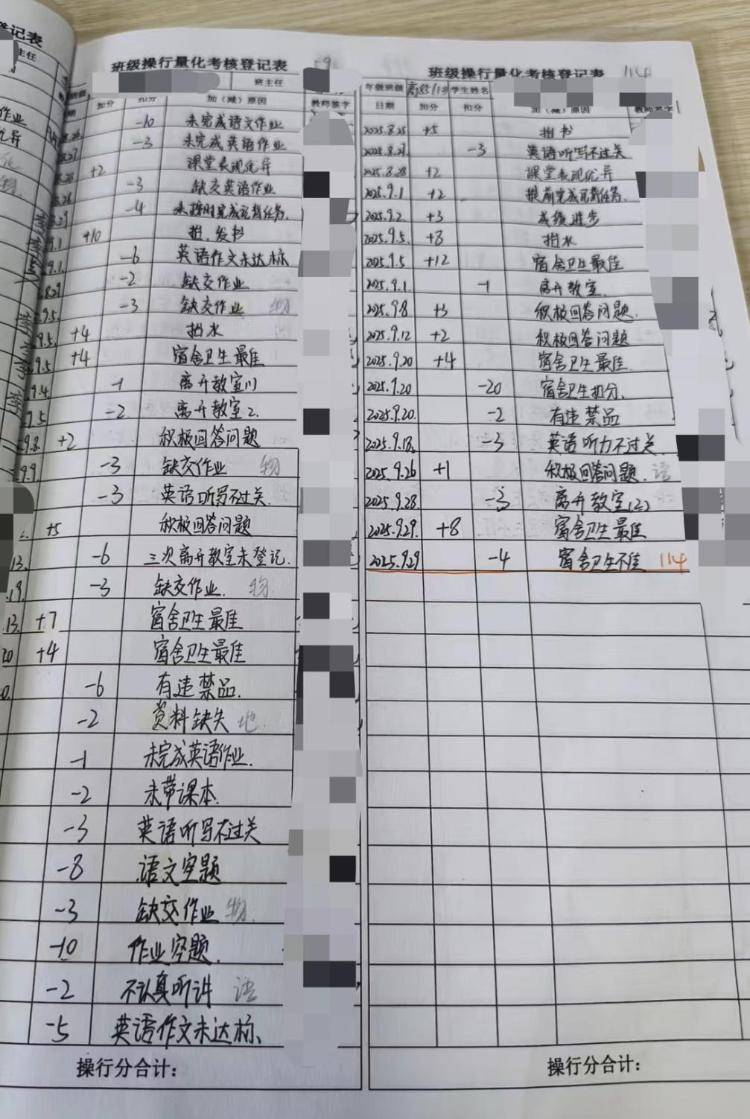 记表
主任
作业
优异
班级操行量化考核登记表
班主任
加分 扣分 加(减)原因 教师签字
-10 未完成语文作业
-3 未完成英语作业
+2 课堂表现优异
-3 缺交英语作业
-4 未按时完成背诵任务
+10 担、发书
-6 英语作文未达标
-2 缺交作业
-3 缺交作业 物
+4 担水
+4 宿舍卫生最佳
-1 离开教室
-2 离开教室2.
9.8 +2 积极回答问题
9.9 -3 缺交作业 物
-3 英语听写不过关.
+5 积极回答问题
13. -6 三次离开教室未登记.
19. -3 缺交作业. 物
13. +7 宿舍卫生最佳
20 +4 宿舍卫生最佳
-6 有违禁品.
-2 资料缺失 地
-1 未完成英语作业.
-2 未带课本.
-3 英语听写不过关
-8 语文空题
-3 缺交作业 物.
-10 作业空题.
-2 不认真听讲 语
-5 英语作文未达标、
操行分合计:
班级操行量化考核登记表 114
年级班级 学生姓名
日期 加分 扣分 加(减)原因 教师签字
2025.8.25 +5 担书
-3 英语听写不过关
2025.8.28 +2 课堂表现优异
2025.9.1 +2 提前完成背诵任务.
2025.9.2 +3 成绩进步
2025.9.5. +8 担水
2025.9.5 +12 宿舍卫生最佳
2025.9.1 -1 离开教室.
2025.9.8 +3 积极回答问题.
2025.9.12 +2 积极回答问题
2025.9.20 +4 宿舍卫生最佳
2025.9.20 -20 宿舍卫生扣分.
2025.9.20. -2 有违禁品
2025.9.18. -3 英语听力不过关.
2025.9.26 +1 积极回答问题. 语
2025.9.28 -3 离开教室(2)
2025.9.29. +8 宿舍卫生最佳
2025.9.29 -4 宿舍卫生不佳 114
操行分合计: